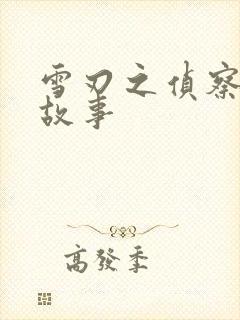 雪刃之偵察
故事
高發季